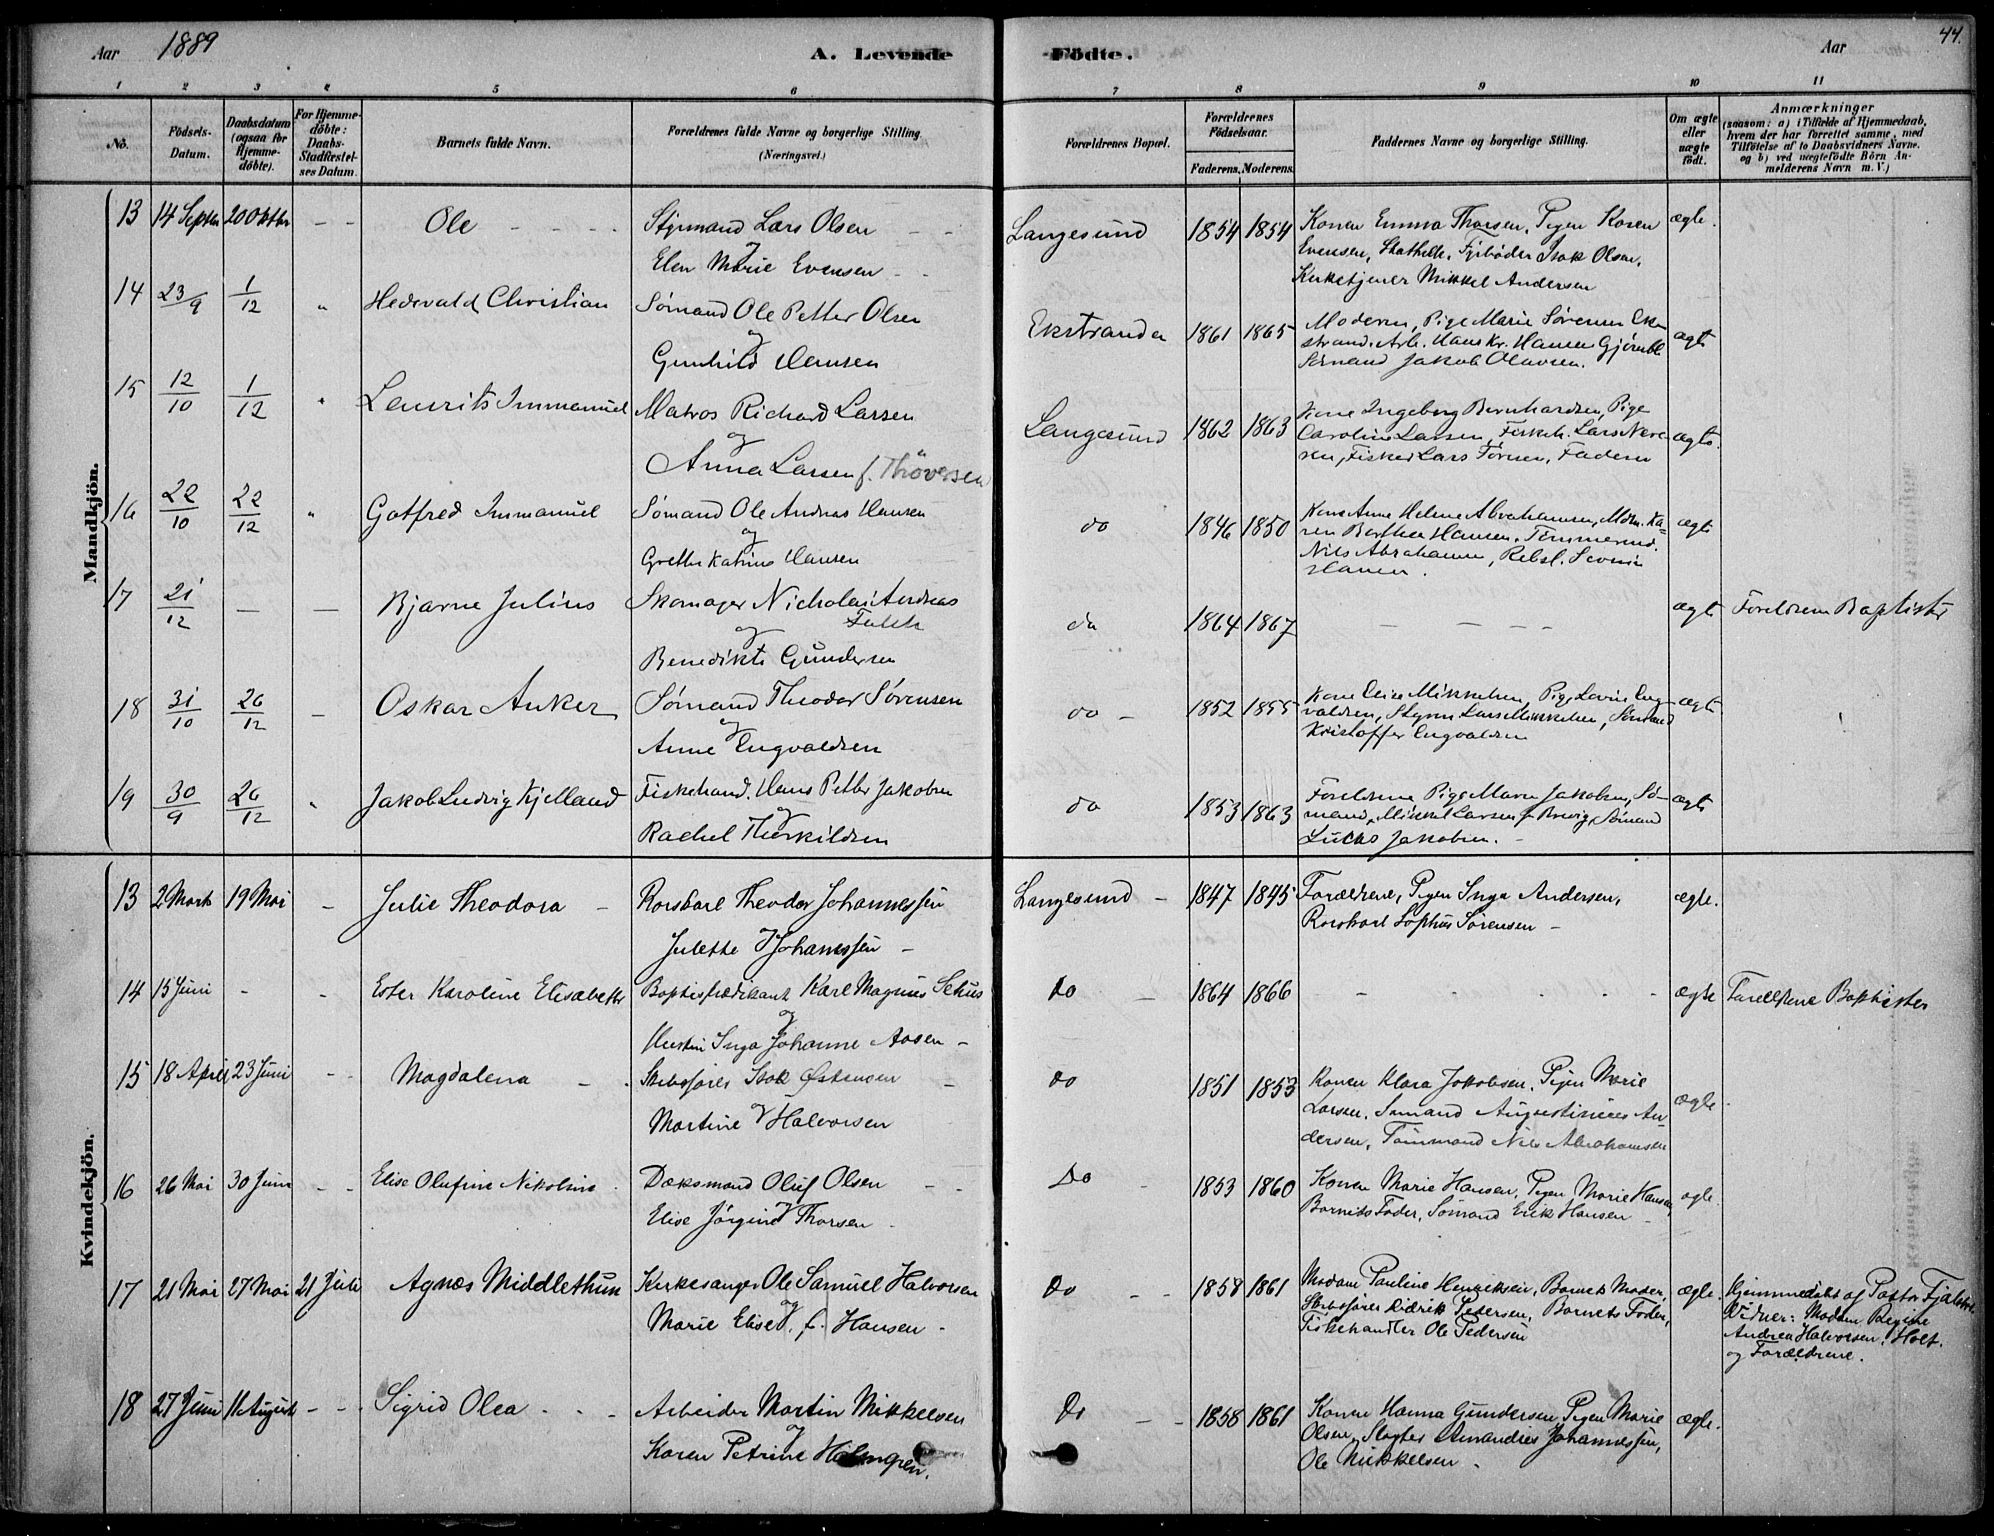 Aar 1889 A. Levende Födte. Aar 44.
1 2 3 4 5 6 7 8 9 10 11
No. Födsels-Datum. Daabsdatum (ogsaa for Hjemmedöbte). For Hjemmedöbte: Daabs-Stadfæstelses Datum. Barnets fulde Navn. Forældrenes fulde Navne og borgerlige Stilling. (Næringsvei.) Forældrenes Bopæl. Forældrenes Födselsaar. Faderens. Moderens. Faddernes Navne og borgerlige Stilling. Om ægte eller uægte födt. Anmærkninger (saasom: a) i Tilfælde af Hjemmedaab, hvem der har forrettet samme, med Tilföielse af to Daabsvidners Navne, og b) ved uægtefödte Börn Anmelderens Navn m. V.)
Mandkjön.
13 14 Septbr 20 Oktbr - - Ole - - - - Styrmand Lars Olsen - - Langesund 1854 1854 Konen Emma Thorsen, Pigen Karen ægte.
og
Elen Marie Evensen - - Evensen, Stathelle, Fyrböder Isak Olsen,
Kirketjener Mikkel Andersen
14 23/9 1/12 " Hedevald Christian Sömand Ole Petter Olsen Ekstranda 1861 1865 Moderen, Pige Marie Sörensen Ek- ægte
og
Gunhild Hansen strand. Arb. Hans Kr. Hansen
Sömand Jakob Olavsen.
15 12/10 1/12 " Laurits Immanuel Matros Richard Larsen Langesund 1862 1863 Kone Ingeborg Bernhardsen, Pige ægte
og
Anna Larsen f. Thövesen Caroline Larsen, Fiskeh. Lars
Fisker Lars Faderen
16 22/10 22/12 " Gotfred Immanuel Sömand Ole Andreas Hansen do 1846 1850 Kone Anne Helene Abrahamsen, Ka- ægte
og
Grethe Katrine Hansen ren Berthea Hansen, Tömmermd.
Nils Abrahamsen, Rebsl.
Hansen.
17 21/12 - - Bjarne Julius Skomager Nicholai Andreas Falck do 1864 1867 - - - - ægte Foreldrene Baptister
og
Benedikte Gundersen
18 31/10 26/12 - Oskar Anker Sömand Theodor Sörensen do - 1852 1855 Kone Mikkelsen, Pige Lovise Eng- ægte
og
Anne Engvaldsen valdsen, Styrm Lars Mikkelsen, Sömand
Kristoffer Engvaldsen
19 30/9 26/12 " Jakob Ludvig Kjelland Fiskehand. Hans Petter Jakobsen do 1853 1863 Foreldrene Pige Maren Jakobsen, Sö- ægte
og
Rachel Therkildsen mand, Mikkel Larsen f. Brevig, Sömand
Lucas Jakobsen. -
Kvindekjön.
13 2 Marts 19 Mai - Julie Theodora - Rorskarl Theodor Johannessen Langesund - 1847 1845 Forældrene, Pigen Inga Andersen, ægte.
og
Julette Johannessen - Rorskarl Sophus Sörensen -
14 15 Juni - - Ester Karoline Elisabeth Baptistprædikant Karl Magnus Do - 1864 1866 - - - - ægte Forældrene Baptister
og
Hustru Inga Johanne Aasen -
15 18 April 23 Juni - - Magdalena - - Skibsförer Isak Do 1851 1853 Konen Klara Jakobsen, Pigen Marie ægte
og
Martine Halvorsen Larsen, Sömand Augustinus An-
dersen, Tömmermand Nils Abrahamsen
16 26 Mai 30 Juni - - Elise Olufine Nikoline Dæksmand Oluf Olsen - - Do - 1853 1860 Konen Marie Hansen, Pigen Marie Hansen, ægte.
og
Elise Jörgine Thorsen Barnets Fader, Sömand Erik Hansen -
17 21 Mai 27 Mai 21 Juli Agnes Middlethun Kirkesanger Ole Samuel Halvorsen Do - - 1858 1861 Madam Pauline Henriksen, Barnets Moder, ægte. Hjemmedöbt af Pastor
og
Marie Elise f. Hansen - Skibsförer Didrik Pedersen, Barnets Fader, Vidner: Madam Regine
Fiskehandler Ole Pedersen Andrea Halvorsen, Holt.
og Forældrene.
18 27 Juni 11 August - - Sigrid Olea - - - Arbeider Martin Mikkelsen Do - - 1858 1861 Konen Hanna Gundersen, Pigen Marie ægte.
og
Karen Petrine Holmgren. Olsen, Slagter Johannessen,
Ole Mikkelsen -